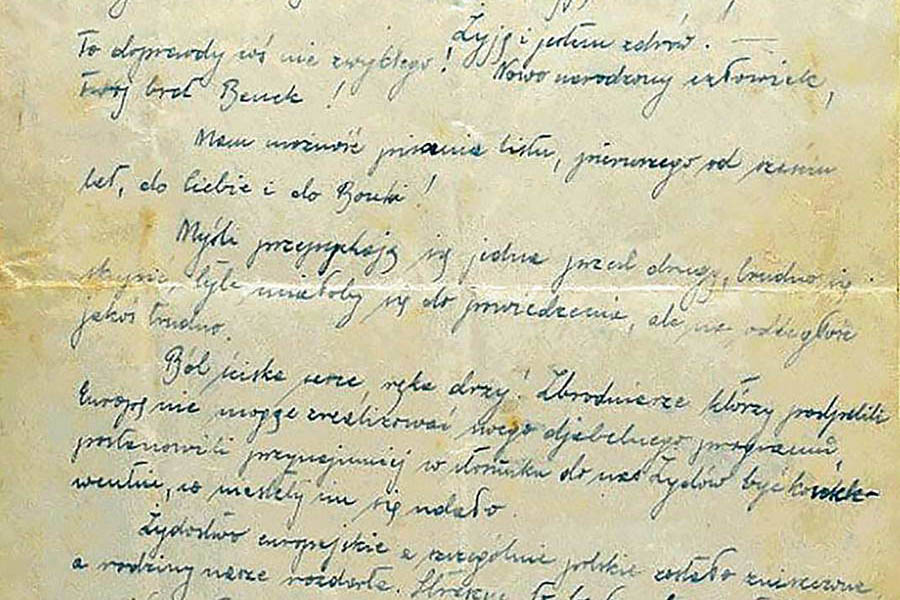 Żyję i jestem zdrów. —
To doprawdy coś nie zwykłego! Nowo narodzony człowiek,
Twój brat Benek!
Mam możność pisania listu, pierwszego od sześciu
lat, do Ciebie i do Bronki!
Myśli przepychają się jedna przed drugą, trudno się
skupić, tyle miałoby się do powiedzenia, ale na odległość
jakoś trudno.
Ból ściska serce ręka drży! Zbrodniarze którzy podpalili
Europę nie mogąc zrealizować swego djabelnego programu,
postanowili przynajmniej w stosunku do nas Żydów być konsek-
wentni, co niestety im się udało
Żydostwo europejskie a szczególnie polskie zostało zniszczone,
a rodziny nasze rozdarte.